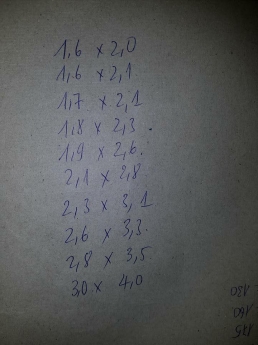 1,6 x 2,0
1,6 x 2,1
1,7 x 2,1
1,8 x 2,3.
1,9 x 2,6.
2,1 x 2,8
2,3 x 3,1
2,6 x 3,3
2,8 x 3,5
3,0 x 4,0
180
160
175